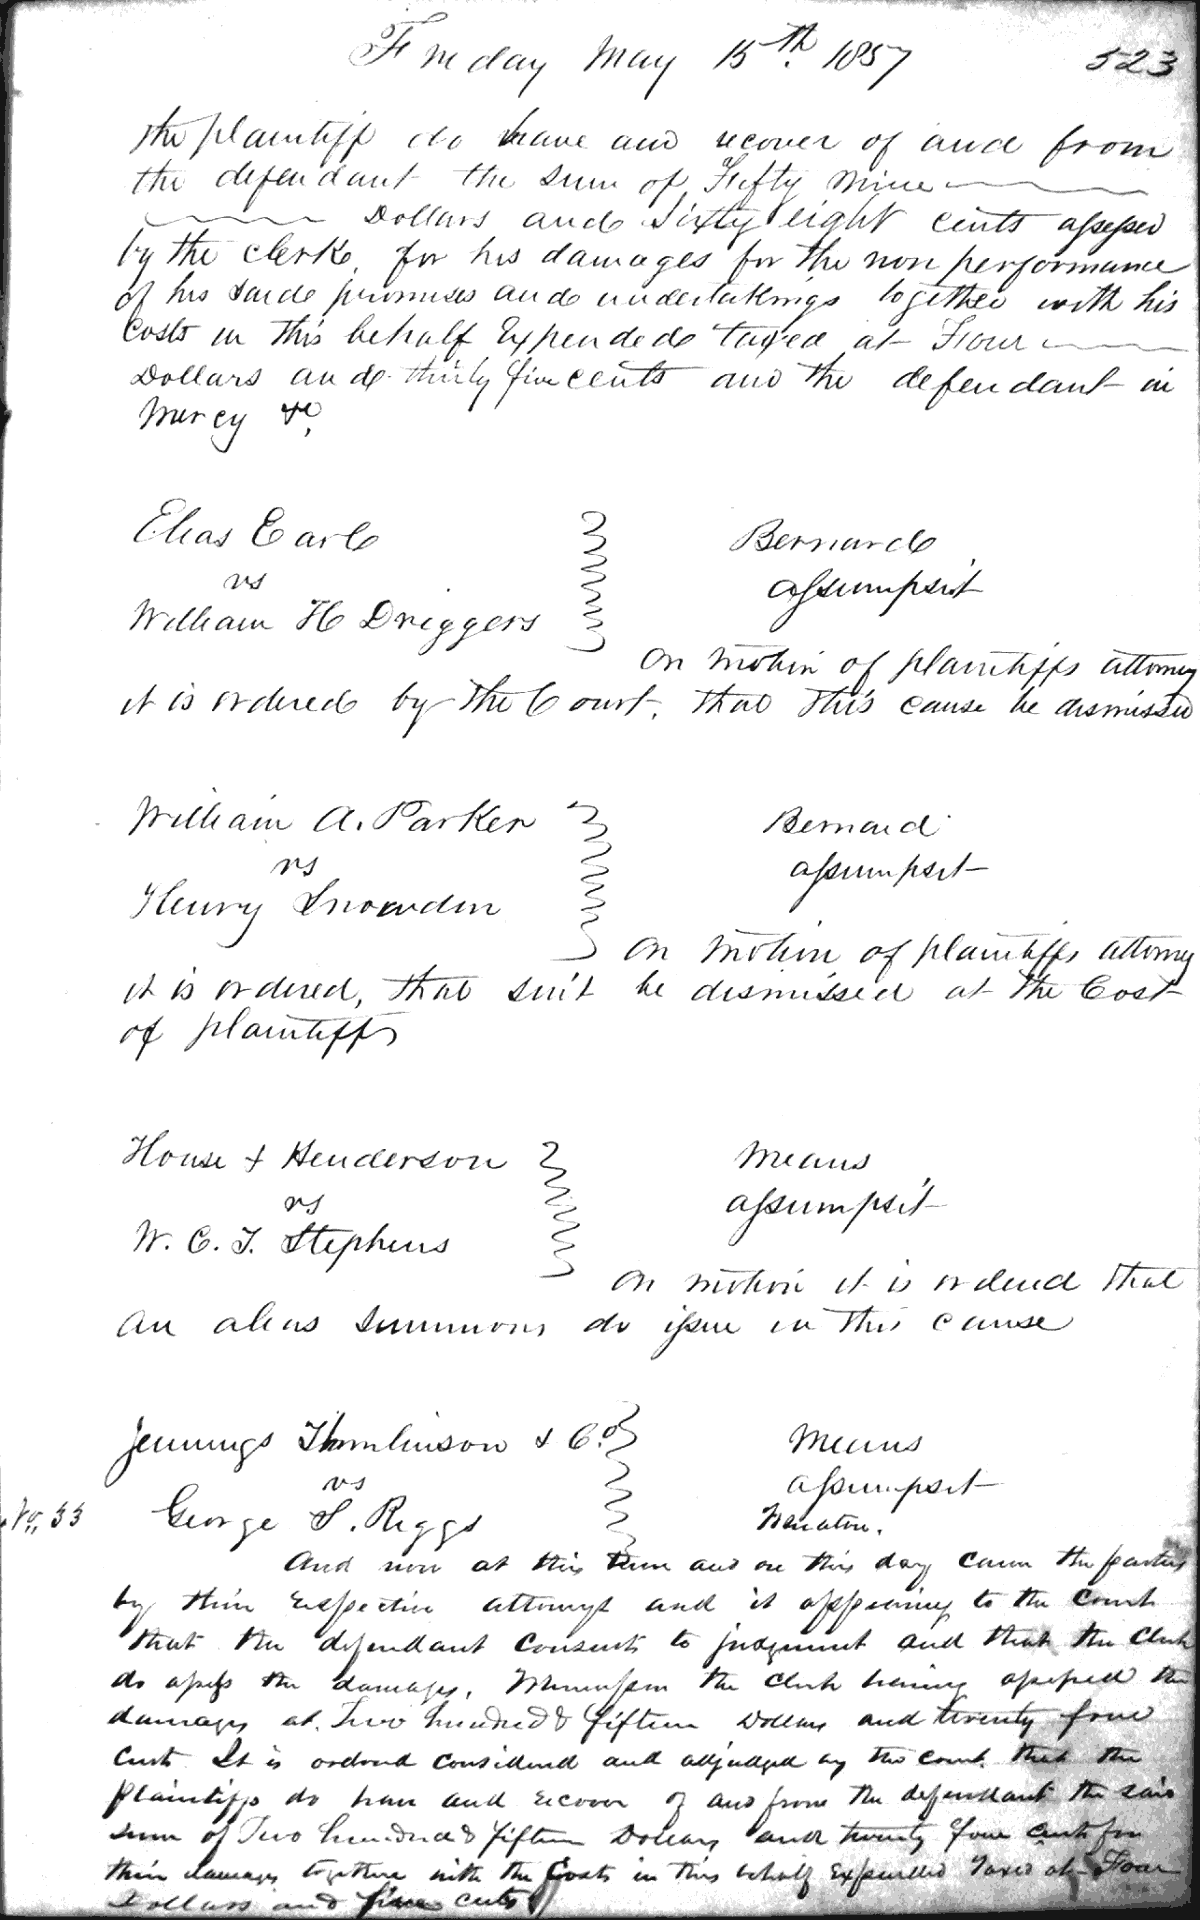 Friday May 15th. 1857 523
the plaintiff do have and recover of and from
the defendant the sum of Fifty Nine
Dollars and Sixty eight cents assessed
by the clerk, for his damages for the non performance
of his said promises and undertakings together with his
Costs in this behalf Expended taxed at Four
Dollars and thirty five cents and the defendant in
Mercy &c,
Elias Earle Bernard
vs assumpsit
William H Driggers
On motion of plaintiffs attorney
it is ordered by the Court, that this cause be dismissed
William A. Parker Bernard
vs assumpsit
Henry Snowden
On motion of plaintiffs attorney
it is ordered, that suit be dismissed at the Cost
of plaintiffs
House & Henderson Means
vs assumpsit
W. C. T. Stephens
On motion it is ordered that
an alias summons do issue in this cause
Jennings Thomlinson & Co. Means
vs assumpsit
No. 33 George S. Riggs
And now at this term and on this day came the parties
by their respective attorneys and it appearing to the court
that the defendant consents to judgment and that the clerk
do assess the damages, Whereupon the clerk having assessed the
damages at Two hundred & fifteen Dollars and twenty four
cents It is ordered considered and adjudged by the court that the
plaintiffs do have and recover of and from the defendant the said
sum of Two hundred & fifteen Dollars and twenty four cents for
their damages together with the Costs in this behalf expended taxed at Four
Dollars and five cents